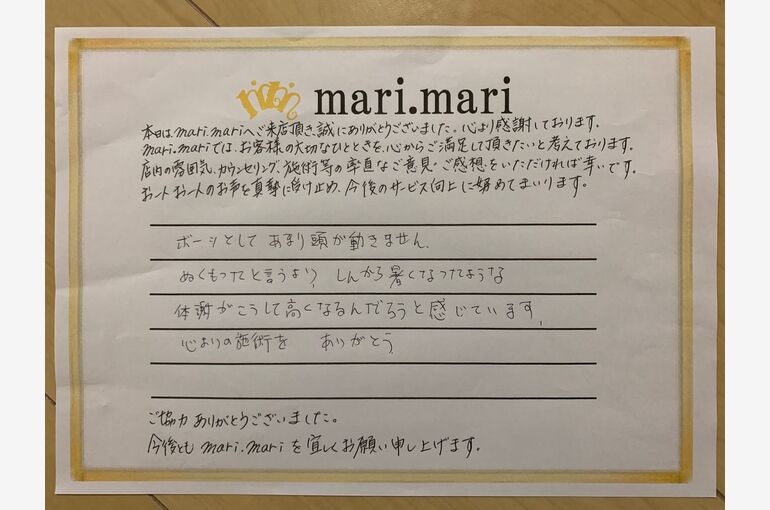 mari.mari
本日は、mari.mariへご来店頂き、誠にありがとうございました。心より感謝しております。
mari.mariでは、お客様の大切なひとときを、心からご満足して頂きたいと考えております。
店内の雰囲気、カウンセリング、施術等の率直なご意見・ご感想をいただければ幸いです。
お一人お一人のお声を真摯に受け止め、今後のサービス向上に努めてまいります。
ボーッとして あまり頭が動きません。
ぬくもったと言うより、しんから暑くなったような
体謝がこうして高くなるんだろうと感じています。
心よりの施術を ありがとう
ご協力ありがとうございました。
今後とも mari.mari を宜しくお願い申し上げます。